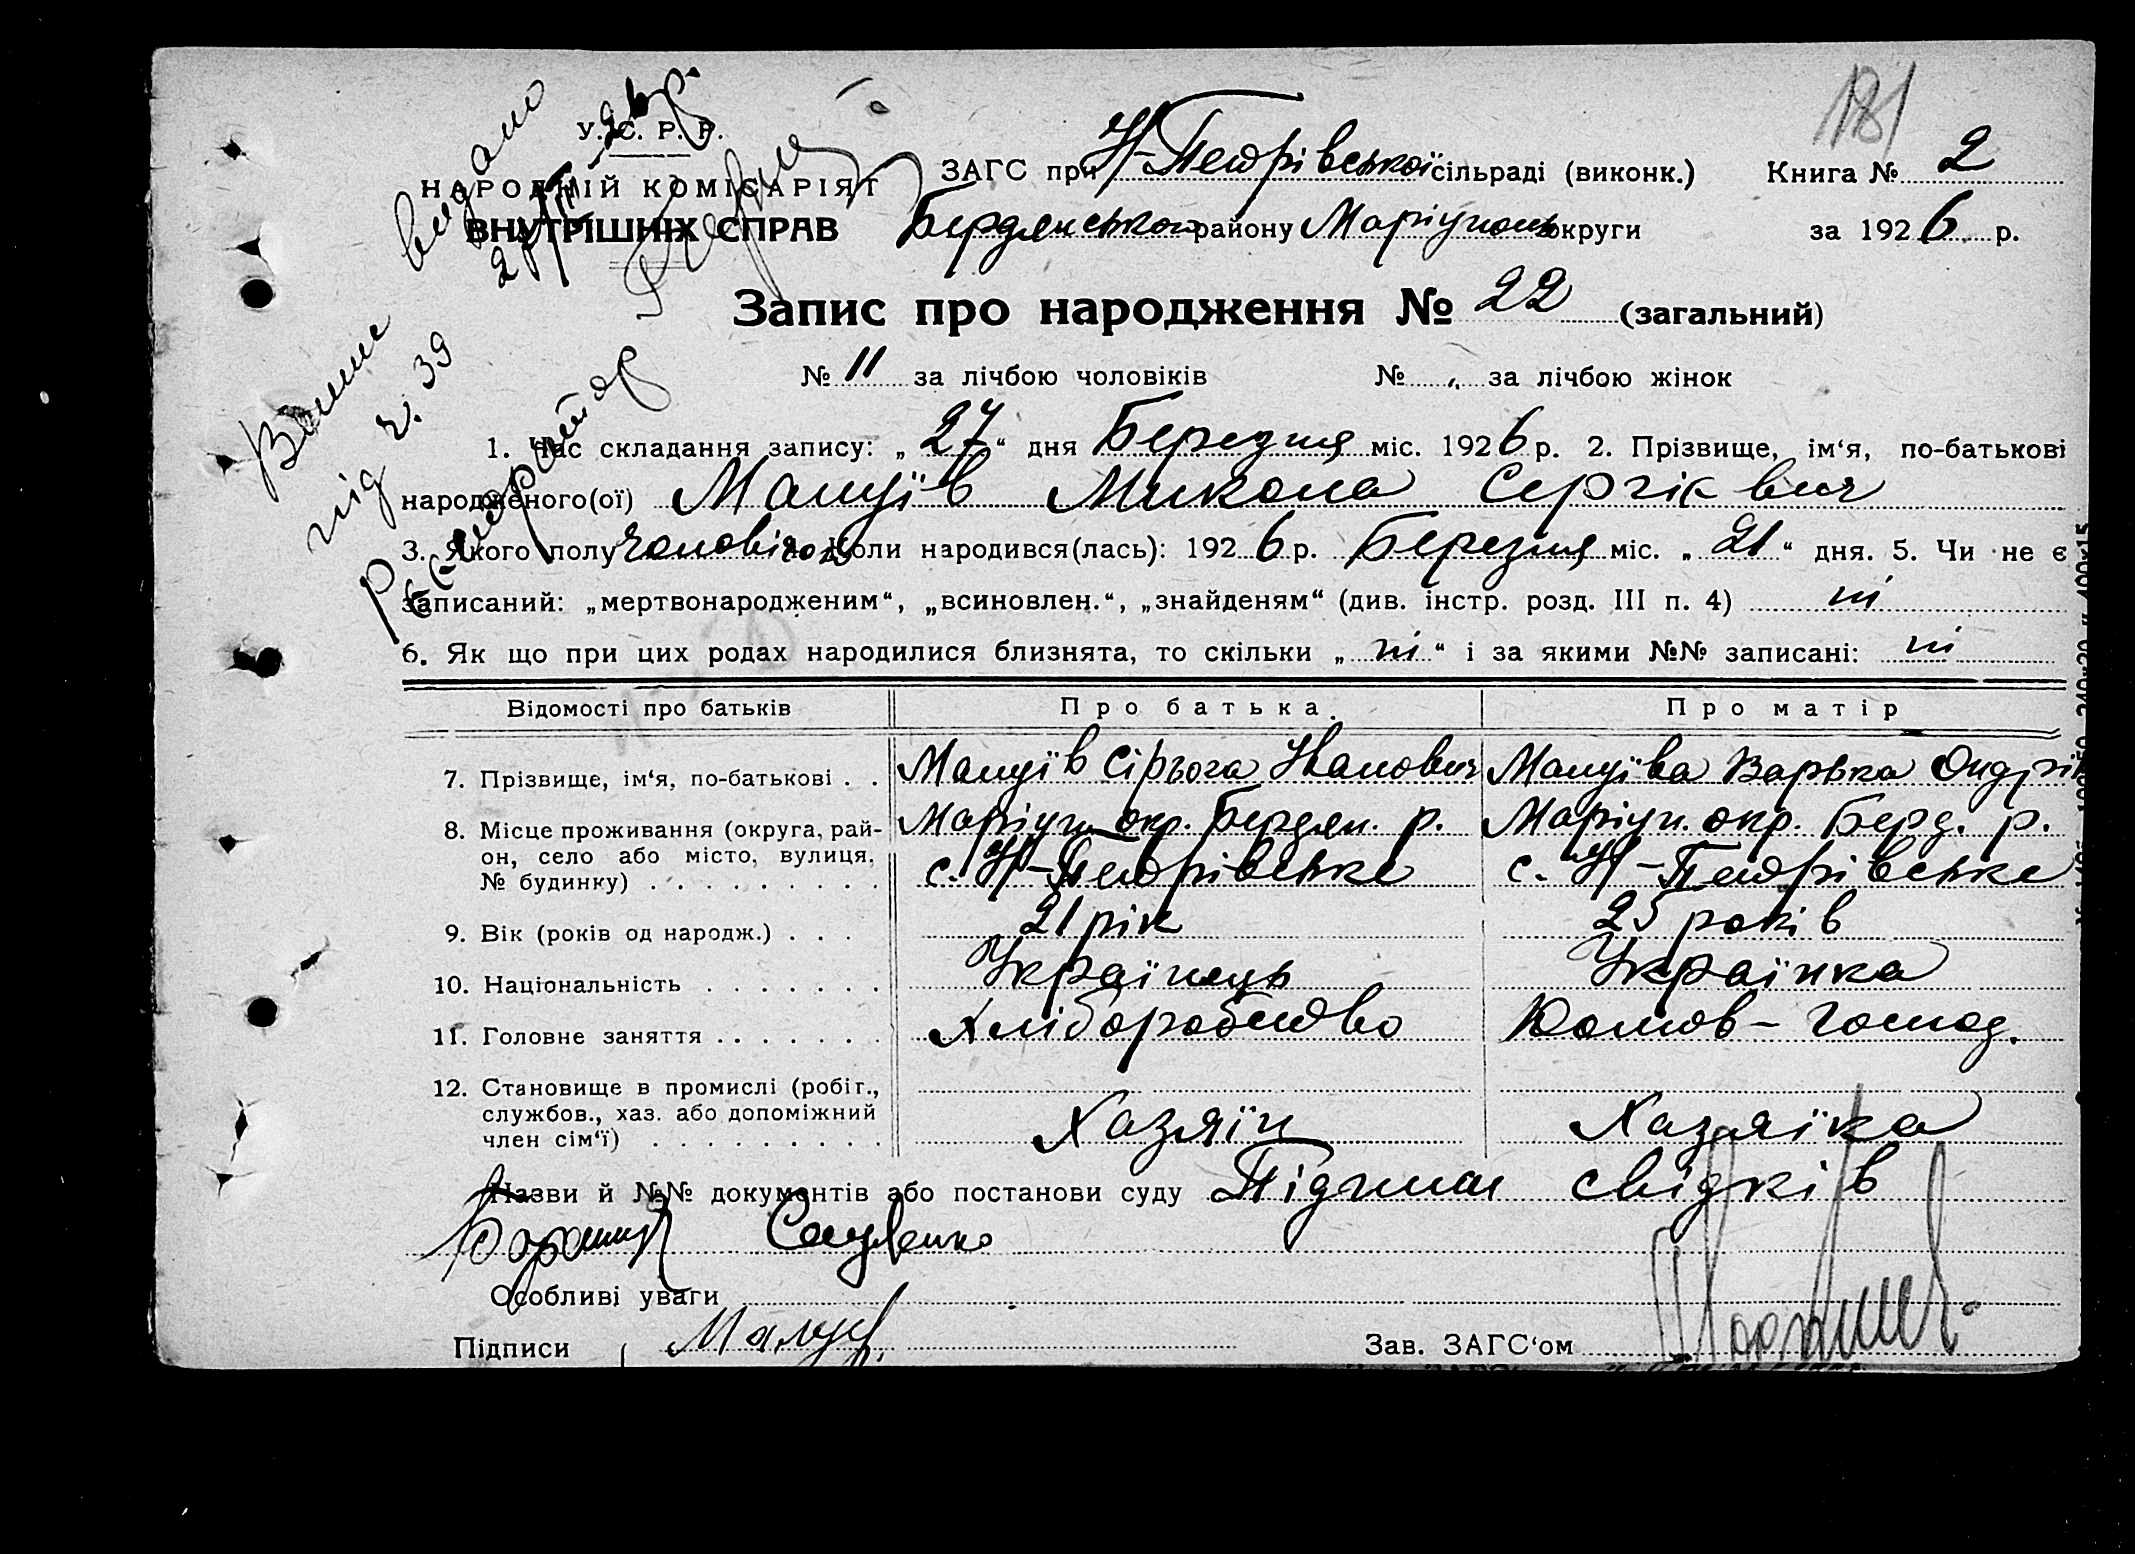 181
У. С. Р. Р.
НАРОДНІЙ КОМІСАРІЯТ
ВНУТРІШНІХ СПРАВ
ЗАГС при Н-Петрівської сільраді (виконк.) Книга № 2
Бердянського району Маріупольськ округи за 1926 р.
Запис про народження № 22 (загальний)
№ 11 за лічбою чоловіків № " за лічбою жінок
видано
під ч. 39
1. Час складання запису: „27“ дня Березня міс. 1926 р. 2. Прізвище, ім‘я, по-батькові
народженого(ої) Мануїв Микола Сергієвич
3. Якого полу чоловічого 4. Коли народився(лась): 1926 р. Березня міс. „21“ дня. 5. Чи не є
записаний: „мертвонародженим“, „всиновлен.“, „знайденям“ (див. інстр. розд. III п. 4) ні
6. Як що при цих родах народилися близнята, то скільки „ні“ і за якими №№ записані: ні
Відомості про батьків Про батька Про матір
7. Прізвище, ім‘я, по-батькові . . Мануїв Сірьога Іванович Мануїва Варька Ондрі
8. Місце проживання (округа, рай- Маріуп. окр. Бердян. р. Маріуп. окр. Берд. р.
он, село або місто, вулиця, с. Н-Петрівське с. Н-Петрівське
№ будинку) . . . . . . . . .
9. Вік (років од народж.) . . . 21 рік 25 років
10. Національність . . . . . . . Українець Українка
11. Головне заняття . . . . . . . Хліборобство Домов-господ.
12. Становище в промислі (робіт.,
службов., хаз. або допоміжний Хазяїн Хазяїка
член сім‘ї) . . . . . . . . .
Назви й №№ документів або постанови суду Підписи свідків
Савченко
Особливі уваги
Підписи Мануїв Зав. ЗАГС‘ом